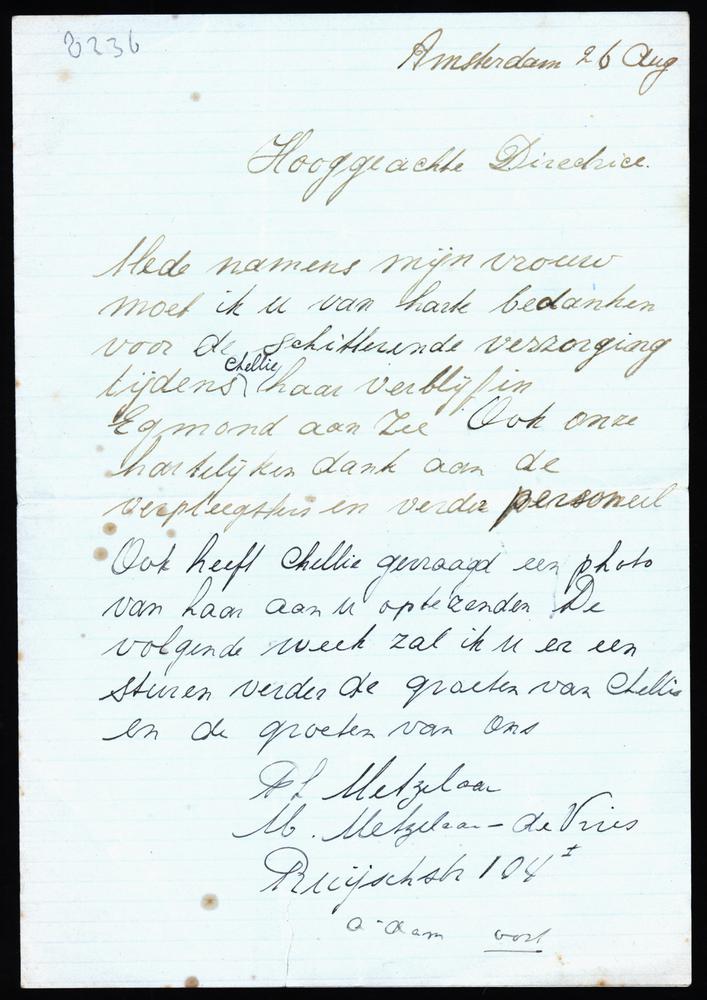 8236
Amsterdam 26 Aug
Hooggeachte Directrice.
Mede namens mijn vrouw
moet ik u van harte bedanken
voor de schitterende verzorging
tijdens Chellie haar verblijf in
Egmond aan Zee Ook onze
hartelijken dank aan de
verpleegsters en verder personeel
Ook heeft Chellie gevraagd een photo
van haar aan u optezenden De
volgende week zal ik u er een
sturen verder de groeten van Chellie
en de groeten van ons
Ph Metzelaar
M. Metzelaar - de Vries
Ruijschstr 104 I
A-dam oost